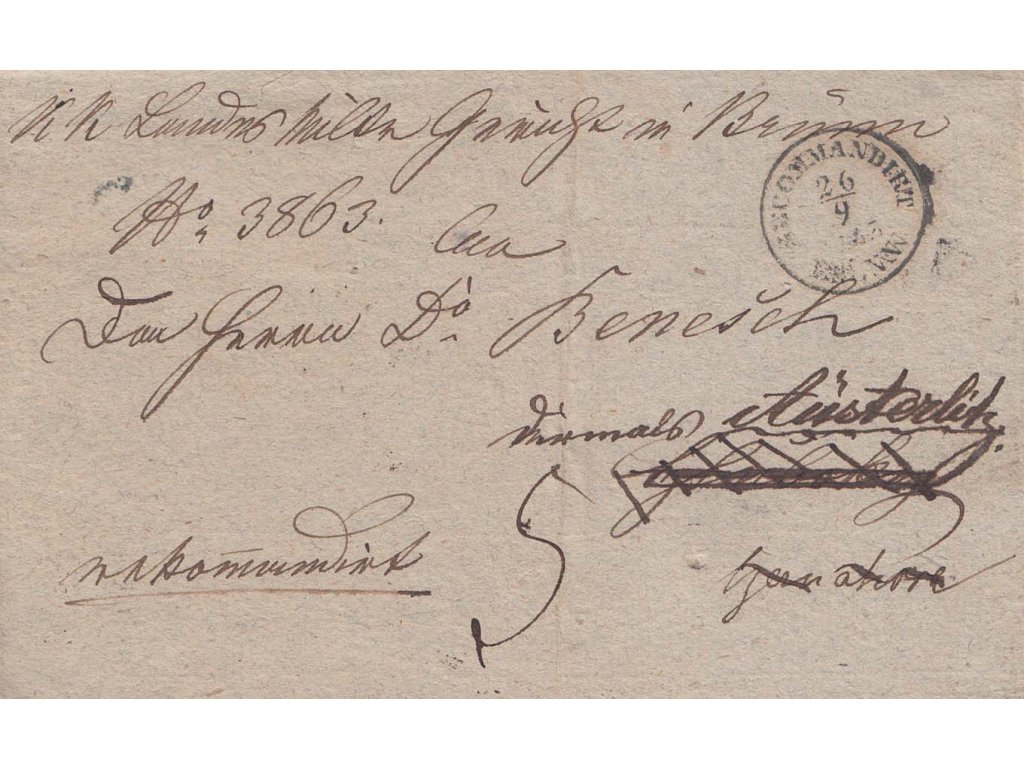 KK Landes Militär Gericht in Brünn
No. 3863.
RECOMMANDIRT
26
9
BRÜNN
An
Den Herrn Dr. Benesch
dermals Austerlitz.
rekommandirt